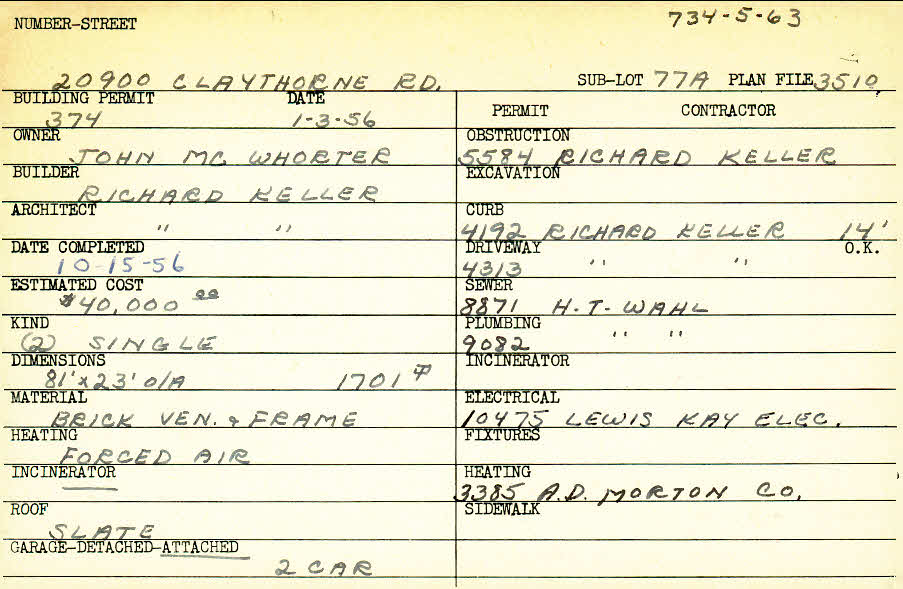 NUMBER-STREET 734-5-63
20900 CLAYTHORNE RD. SUB-LOT 77A PLAN FILE 3510
BUILDING PERMIT DATE
374 1-3-56
OWNER
JOHN MC WHORTER
BUILDER
RICHARD KELLER
ARCHITECT
" "
DATE COMPLETED
10-15-56
ESTIMATED COST
$40,000 00
KIND
(2) SINGLE
DIMENSIONS
81'x23' o/A 1701
MATERIAL
BRICK VEN. & FRAME
HEATING
FORCED AIR
INCINERATOR
ROOF
SLATE
GARAGE-DETACHED-ATTACHED
2 CAR
PERMIT CONTRACTOR
OBSTRUCTION
5584 RICHARD KELLER
EXCAVATION
CURB
4192 RICHARD KELLER 14'
DRIVEWAY O.K.
4313 " "
SEWER
8871 H.T. WAHL
PLUMBING
9082 " "
INCINERATOR
ELECTRICAL
10475 LEWIS KAY ELEC.
FIXTURES
HEATING
3385 A.D. MORTON CO.
SIDEWALK